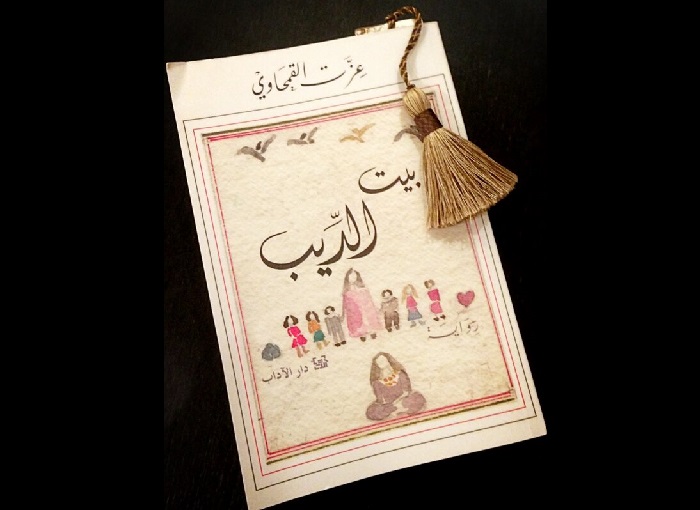 عِزَّت القمحَاوي
بيت
الدِّيب
روَايَة
دار الآداب